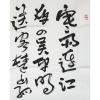 寒雨連江
夜入吳平明
送客楚山孤